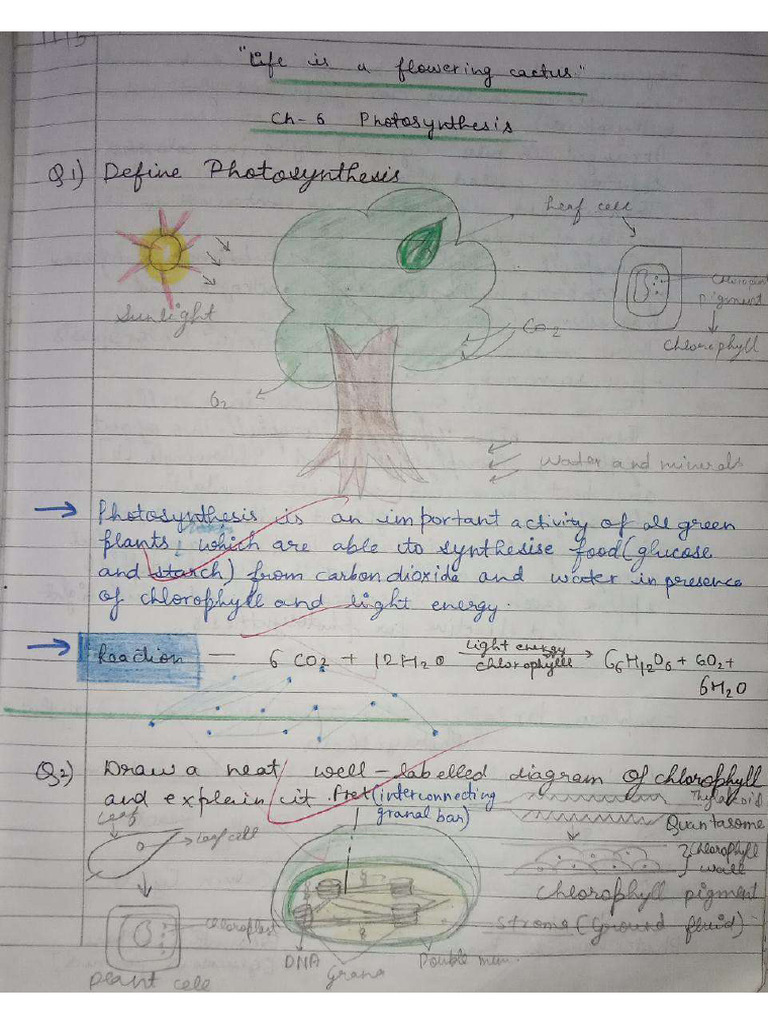 "Life is a flowering cactus"
Ch-6 Photosynthesis
Q1) Define Photosynthesis
Leaf cell
Sunlight
Chloroplast
pigment
Chlorophyll
CO2
O2
Water and minerals
→ Photosynthesis is an important activity of all green
plants, which are able to synthesise food (glucose
and starch) from carbon dioxide and water in presence
of chlorophyll and light energy.
→ Reaction — 6 CO2 + 12H2O light energy
chlorophylll → C6H12O6 + 6O2 +
6H2O
Q2) Draw a neat well-labelled diagram of chlorophyll
and explain it. Fret (interconnecting
granal bar)
Thylakoid
Quantasome
Leaf
Leaf cell
Chlorophyll
wall
Chlorophyll pigment
Chloroplast
Stroma (Ground fluid)
DNA
Grana
Double mem.
Plant cell